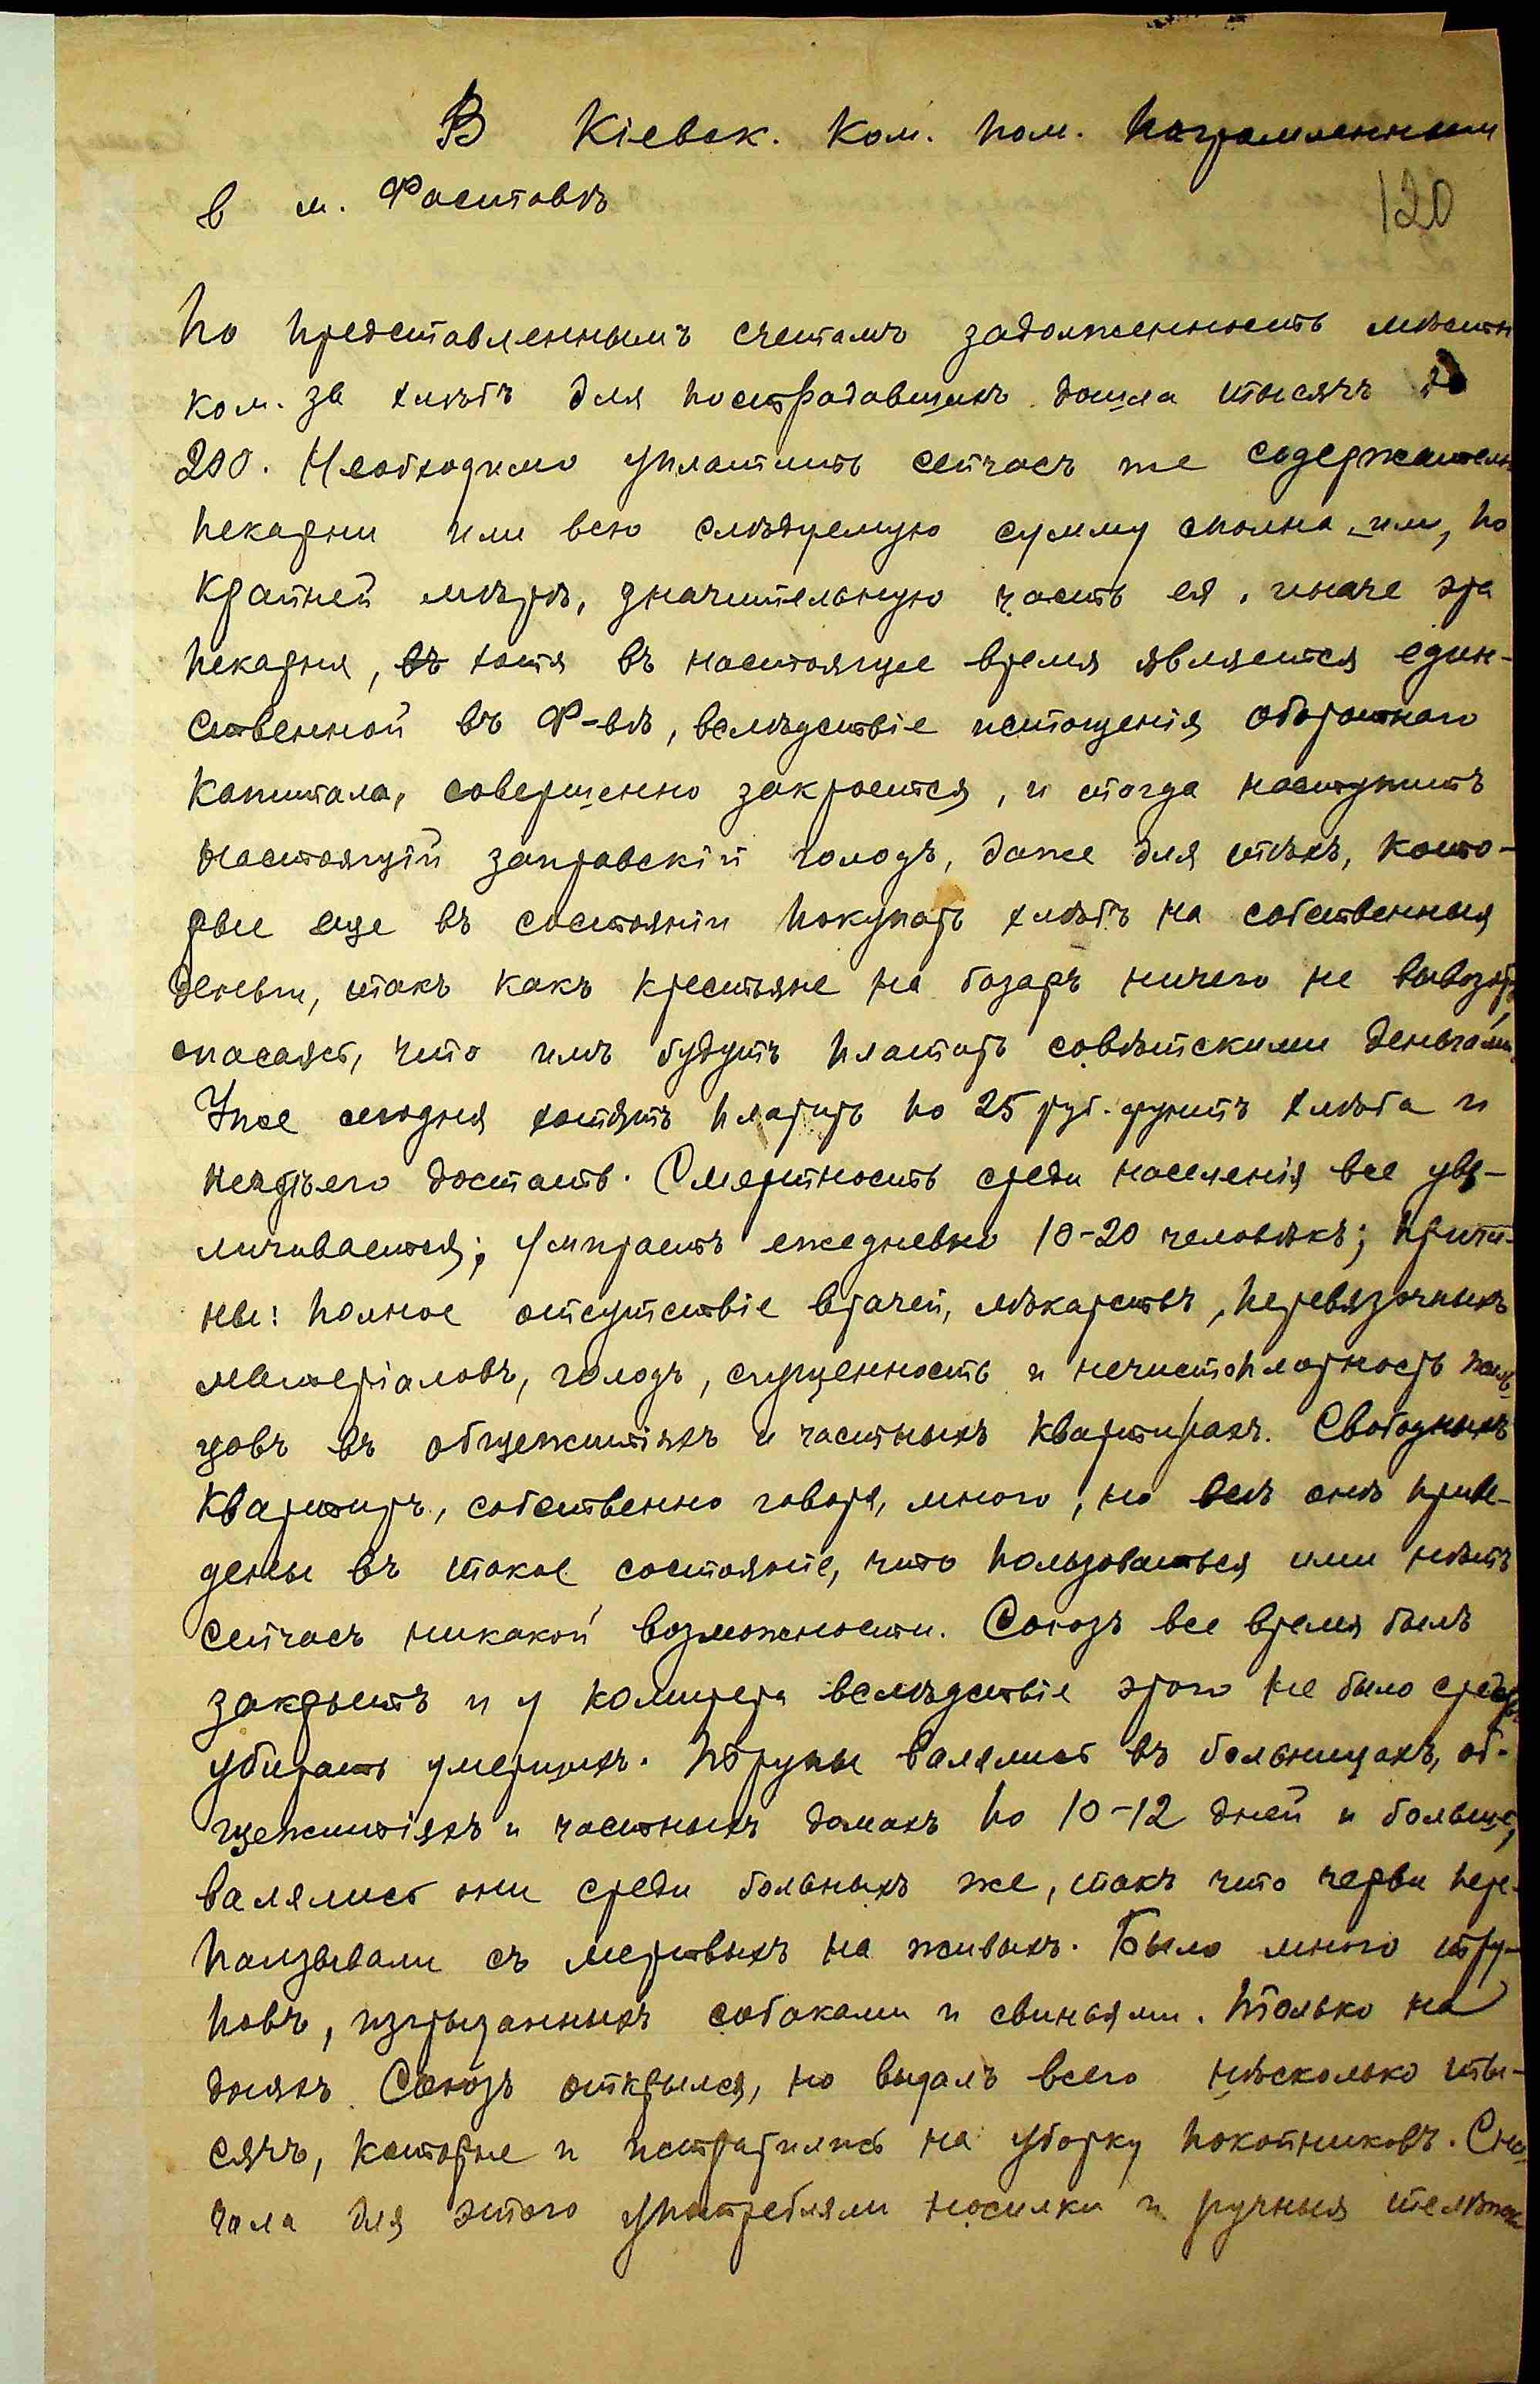 В Кіевск. Ком. пом. погромленным
в м. Фастовѣ
120
По представленнымъ счетамъ задолженность мѣстн
ком. за хлѣбъ для пострадавшихъ дошла тысячъ до
200. Необходимо уплатить сейчасъ же содержателю
пекарни или всю слѣдуемую сумму сполна, или, по
крайней мѣрѣ, значительную часть ея, иначе эта
пекарня, въ хотя въ настоящее время является един-
ственной въ Ф-вѣ, вслѣдствіе истощенія оборотнаго
капитала, совершенно закроется, и тогда наступитъ
настоящій заправскій голодъ, даже для тѣхъ, кото-
рые еще въ состояніи покупать хлѣбъ на собственныя
деньги, такъ какъ крестьяне на базаръ ничего не вывозятъ,
опасаясь, что имъ будутъ платить совѣтскими деньгами.
Уже сегодня хотятъ платить по 25 руб. фунтъ хлѣба и
негдѣ его достать. Смертность среди населенія все уве-
личивается; умираетъ ежедневно 10-20 человѣкъ; причи-
ны: полное отсутствіе врачей, лѣкарствъ, перевязочныхъ
матеріаловъ, голодъ, скученность и нечистоплотность жиль-
цовъ въ общежитіяхъ и частныхъ квартирахъ. Свободныхъ
квартиръ, собственно говоря, много, но всѣ онѣ приве-
дены въ такое состояніе, что пользоваться ими нѣтъ
сейчасъ никакой возможности. Союзъ все время былъ
закрытъ и у комитета вслѣдствіе этого не было средствъ
убирать умершихъ. Трупы валялись въ больницахъ, об-
щежитіяхъ и частныхъ домахъ по 10-12 дней и больше,
валялись они среди больныхъ же, такъ что черви пере-
ползывали съ мертвыхъ на живыхъ. Было много тру-
повъ, изгрызанныхъ собаками и свиньями. Только на
дняхъ Союзъ открылся, но выдалъ всего нѣсколько ты-
сячъ, которые и истратились на уборку покойниковъ. Сна-
чала для этого употребляли носилки и ручныя телѣжки